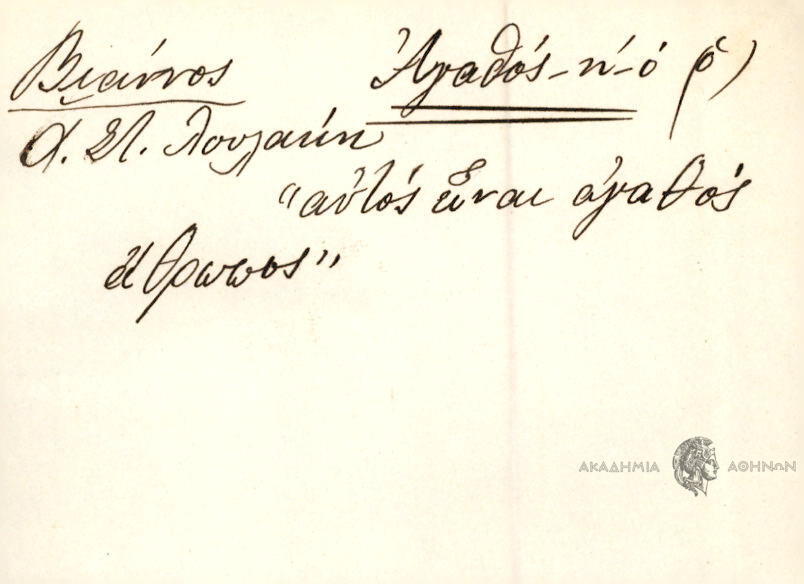 Βιάννος Ἀγαθός-ή-ό (ὁ)
Α. Στ. Λουλάκη
"αὐτός εἶναι ἀγαθός
ἄθρωπος"
ΑΚΑΔΗΜΙΑ ΑΘΗΝΩΝ